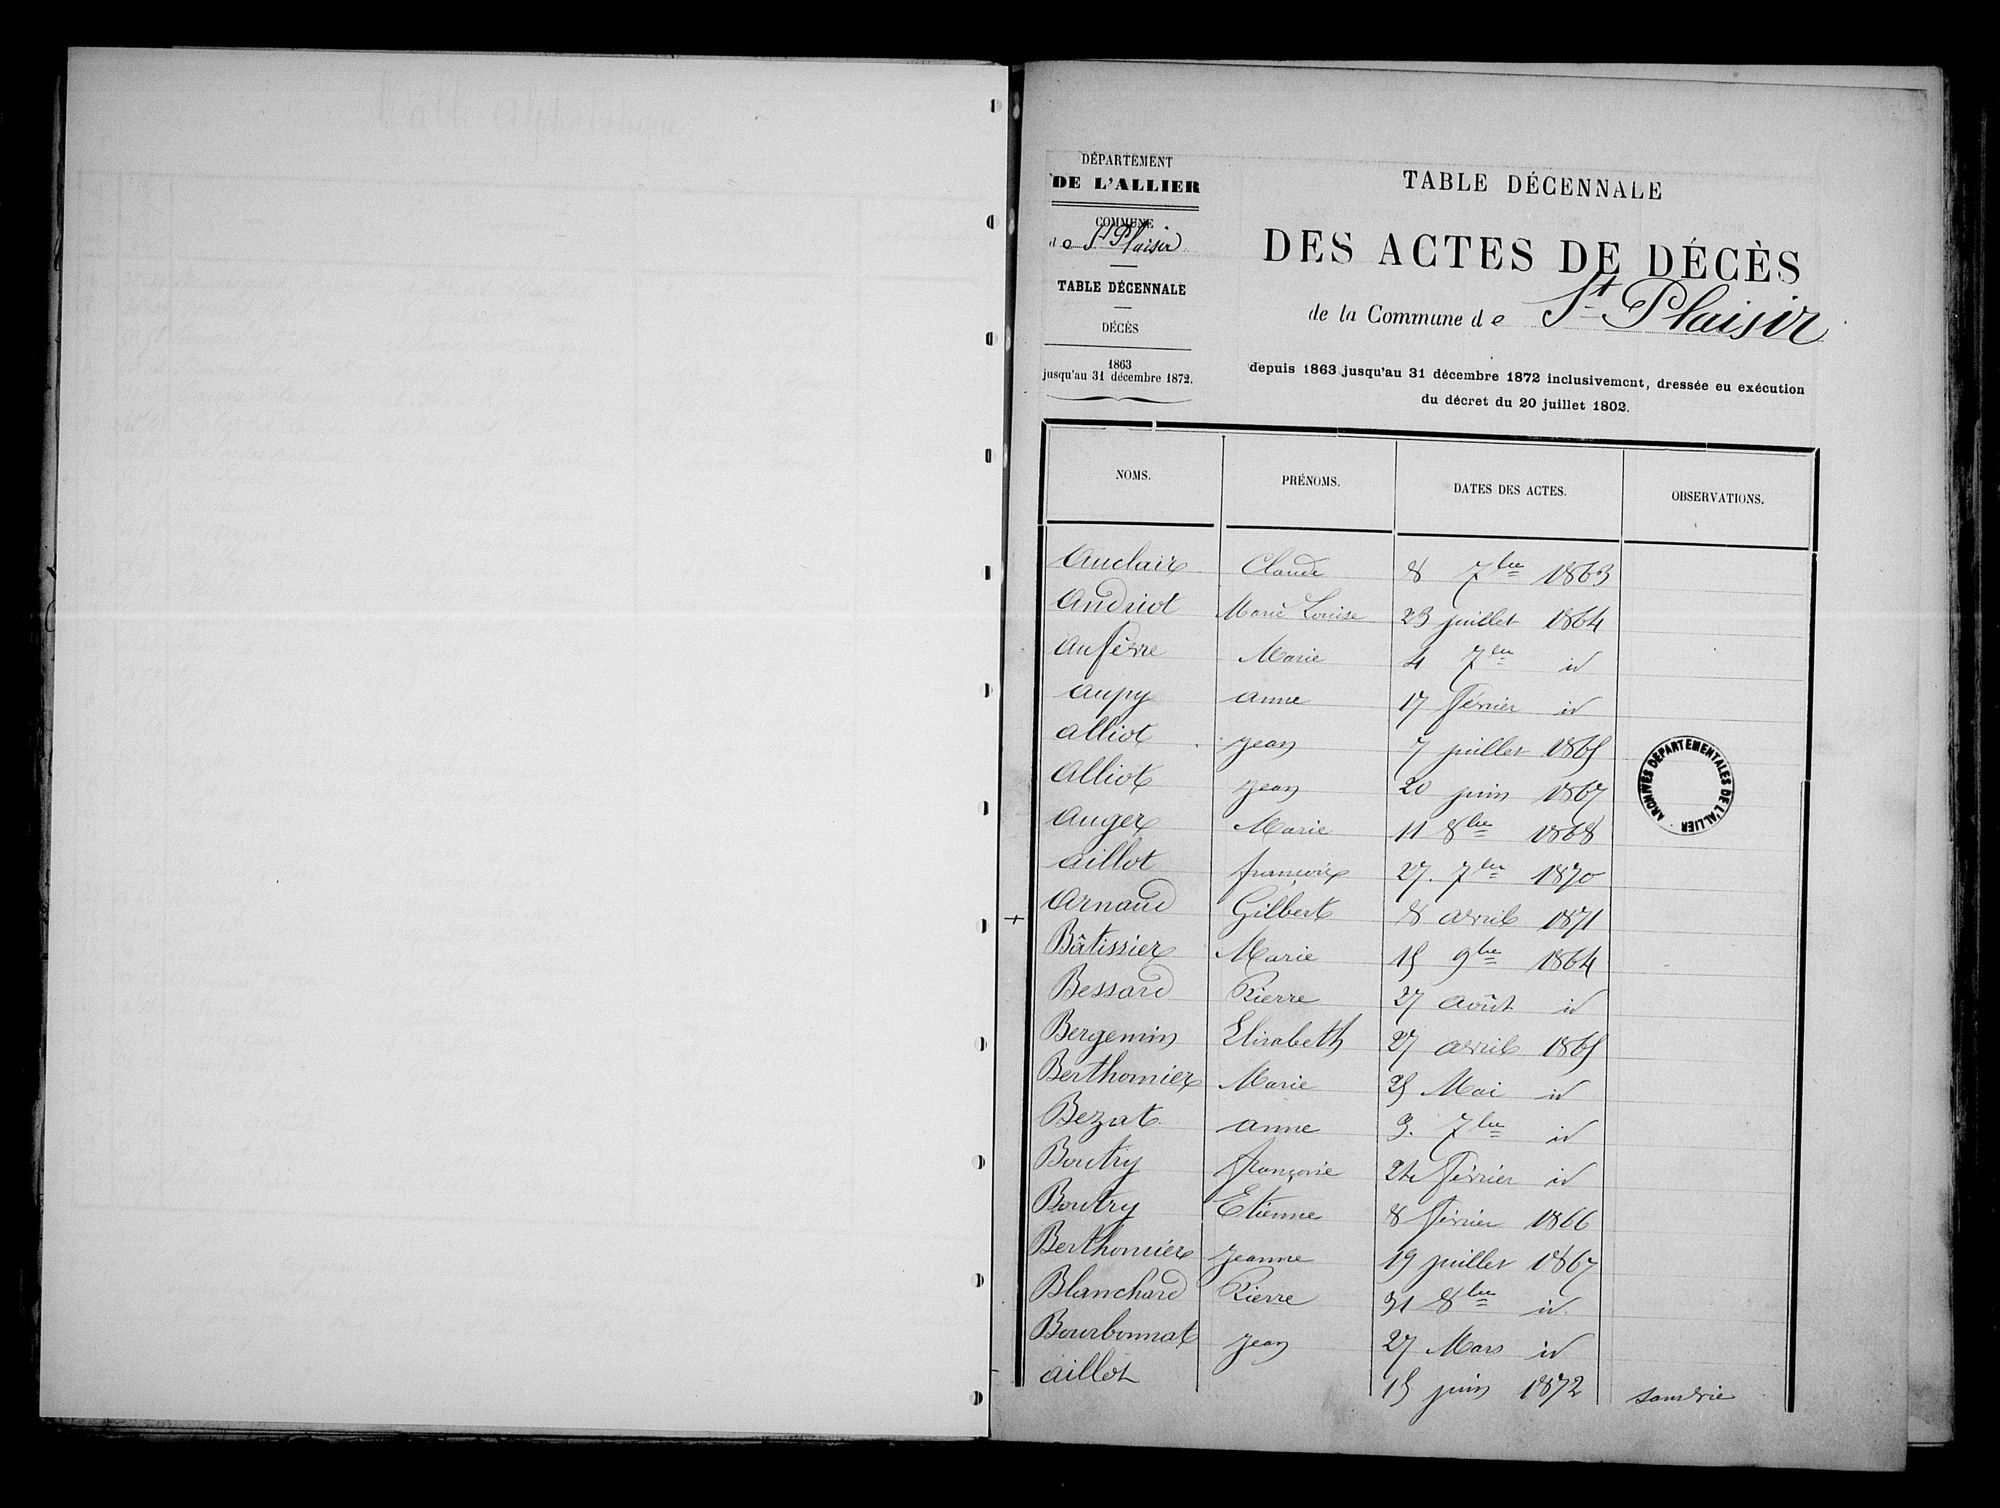 DÉPARTEMENT
DE L'ALLIER
COMMUNE
de St Plaisir
TABLE DÉCENNALE
DÉCÈS
1863
jusqu'au 31 décembre 1872.
TABLE DÉCENNALE
DES ACTES DE DÉCÈS
de la Commune de St Plaisir
depuis 1863 jusqu'au 31 décembre 1872 inclusivement, dressée en exécution
du décret du 20 juillet 1802.
NOMS. PRÉNOMS. DATES DES ACTES. OBSERVATIONS.
Auclair Claude 8 7bre 1863
Andriot Marie Louise 23 juillet 1864
Aufêvre Marie 4 7bre id
Aupy anne 17 Février id
Alliot jean 7 juillet 1865
Alliot jean 20 juin 1867
Auger Marie 11 8bre 1868
aillot françoise 27. 7bre 1870
Arnaud Gilbert 8 avril 1871
Bâtissier Marie 15 9bre 1864
Bessard Pierre 27 août id
Bergemin Elisabeth 27 avril 1865
Berthomier Marie 25 Mai id
Bezat anne 3. 7bre id
Boutry françoise 24 Février id
Boutry Etienne 8 Février 1866
Berthomier jeanne 19 juillet 1867
Blanchard Pierre 31 8bre id
Bourbonnat jean 27 Mars id
aillot 15 juin 1872
ARCHIVES DÉPARTEMENTALES DE L'ALLIER